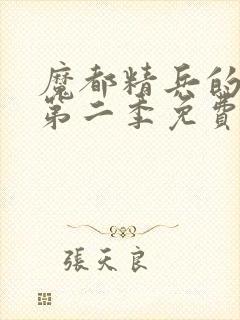 魔都精兵的
第二季免費
張天良